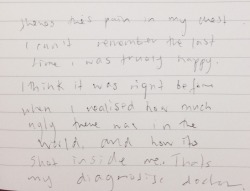 theres this pain in my chest
I can't remember the last
time i was truely happy.
I think it was right before
when I realised how much
ugly there was in the
world, and how its
inside me. Thats
my doctor